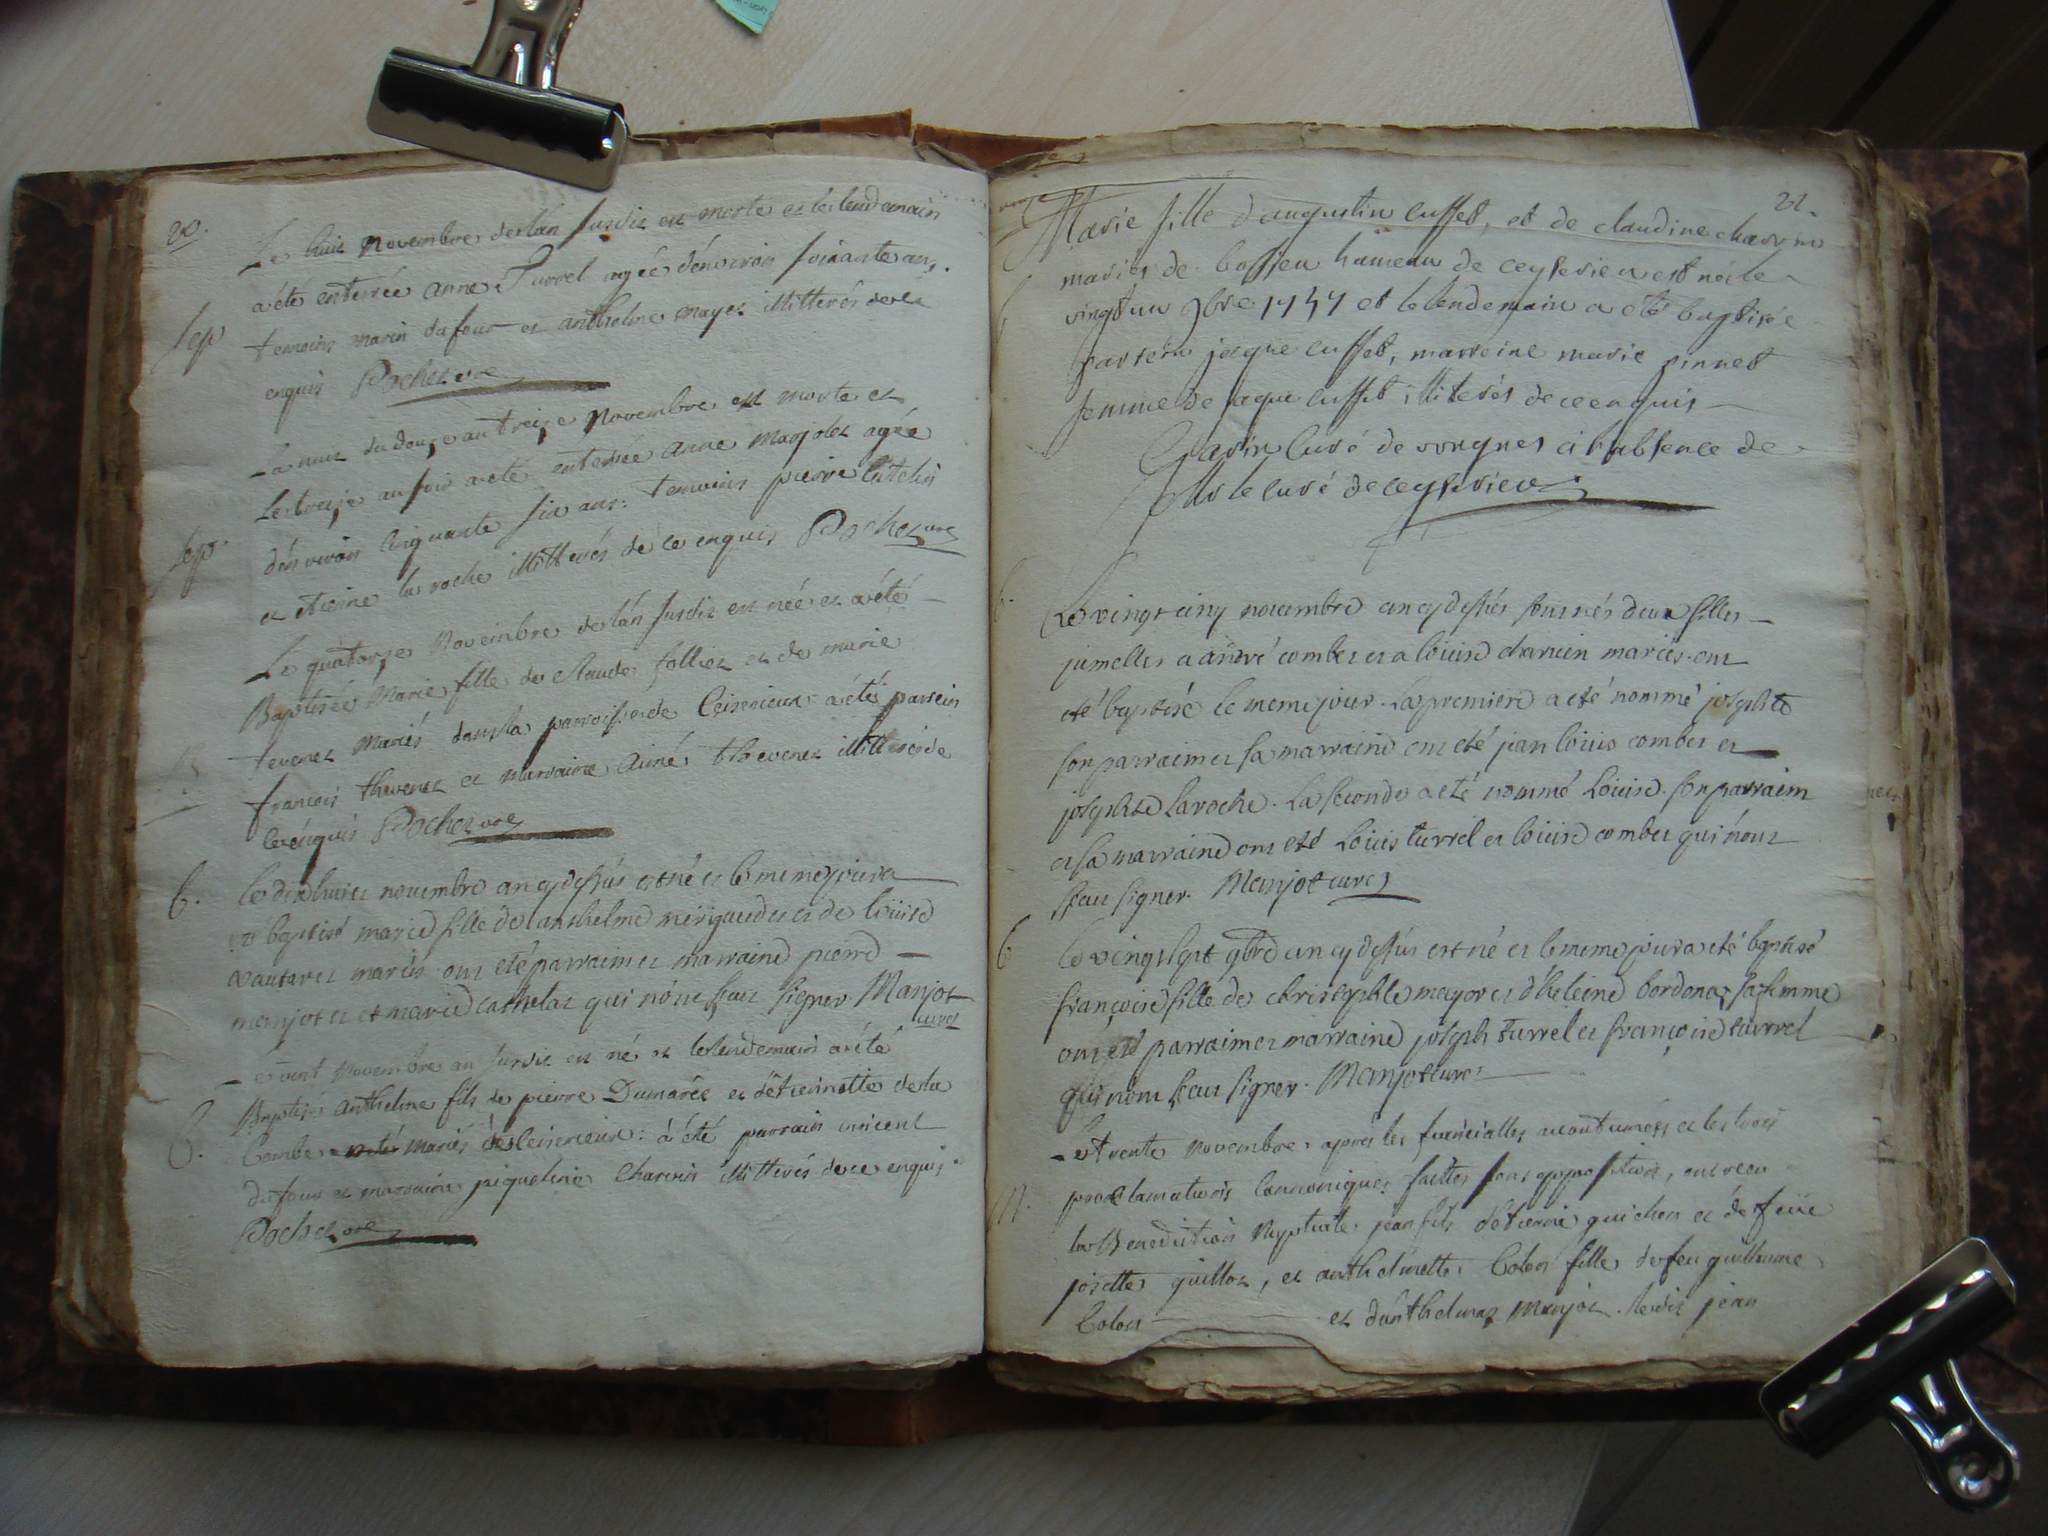 20.
Le huit novembre de lan susdit est morte et le lendemain
a été enterrée anne Turrel agée dénviron soixante ans.
sep
temoins marin dufour et anthelme mayet illitterés de ce
enquis Pochet vre
La nuit du douze au treize novembre est morte et
Le treize au soir a été enterrée anne Manjotet agée
sep.
dénviron cinquante six ans: temoins pierre
et etienne la roche illitterés de ce enquis Pochet vre
Le quatorze novembre de lán susdit est née et a été
Baptisée Marie fille de Claude folliet et de marie
tevenet Mariés dans la parroisse de Ceiserieux a été parrein
B
francois thevenet et marraine Aimé thevenet illitterés de
ce enquis Pochet vre
b. le dixhuit novembre an cy dessus est né et le meme jour a
été baptisé marie fille de anthelme merigaudet et de loüise
vautaret mariés ont eté parraim et marraine pierre
manjotet et marie cathelaz qui nónt sçeu signer. Manjot
curez
Le vint novembre an susdit est né et le lendemain a été
Baptisé anthelme fils de pierre Dumarêt et détiennette de la
b.
Combe mariés de Ceiserieux: à été parrain vincent
dufour et marraine jaqueline Charvin illitterés de ce enquis
Pochet vre
21.
Marie fille daugustin cusset, et de claudine charvin
mariés de bosseu hameau de ceyserieu est née le
b
vingt un 9bre 1747 et le lendemain a eté baptisée
parrein jaque cusset, marreine marie pinnet
femme de jaque cusset illiterés de ce enquis
Gavin Curé de vongnes en l'absence de
Mr le curé de ceyserieu
b. Le vingt cinq novembre an cy dessus sont nés deux filles
jumelles a andré combet et a loüise charvin mariés ont
eté baptisé le meme jour. La premiere a eté nommé josephte
son parraim et sa marraine ont eté jean loüis combet et
josephte laroche. La seconde a eté nommé Loüise. son parraim
et sa marraine ont eté Loüis turrel et loüise combet qui nónt
sçeu signer. Manjot curez
b le vingt sept 9bre an cy dessus est né et le meme jour a eté baptisé
françoise fille de christophle mayor et d'heleine bordonaz sa femme
ont eté parraim et marraine joseph turrel et françoise turrel
qui nont sçeu signer. Manjot curez
Le trente Novembre, apres les fiancialles acoutumées et les trois
proclamations Cannoniques faittes sans opposition, ont recu
M.
la Benediction Nuptiale jean fils détienne guichon et de feüe
josette guilloz, et anthelmette Colon fille de feu guillaume
Colon et dánthelmaz Manjot. ledit jean